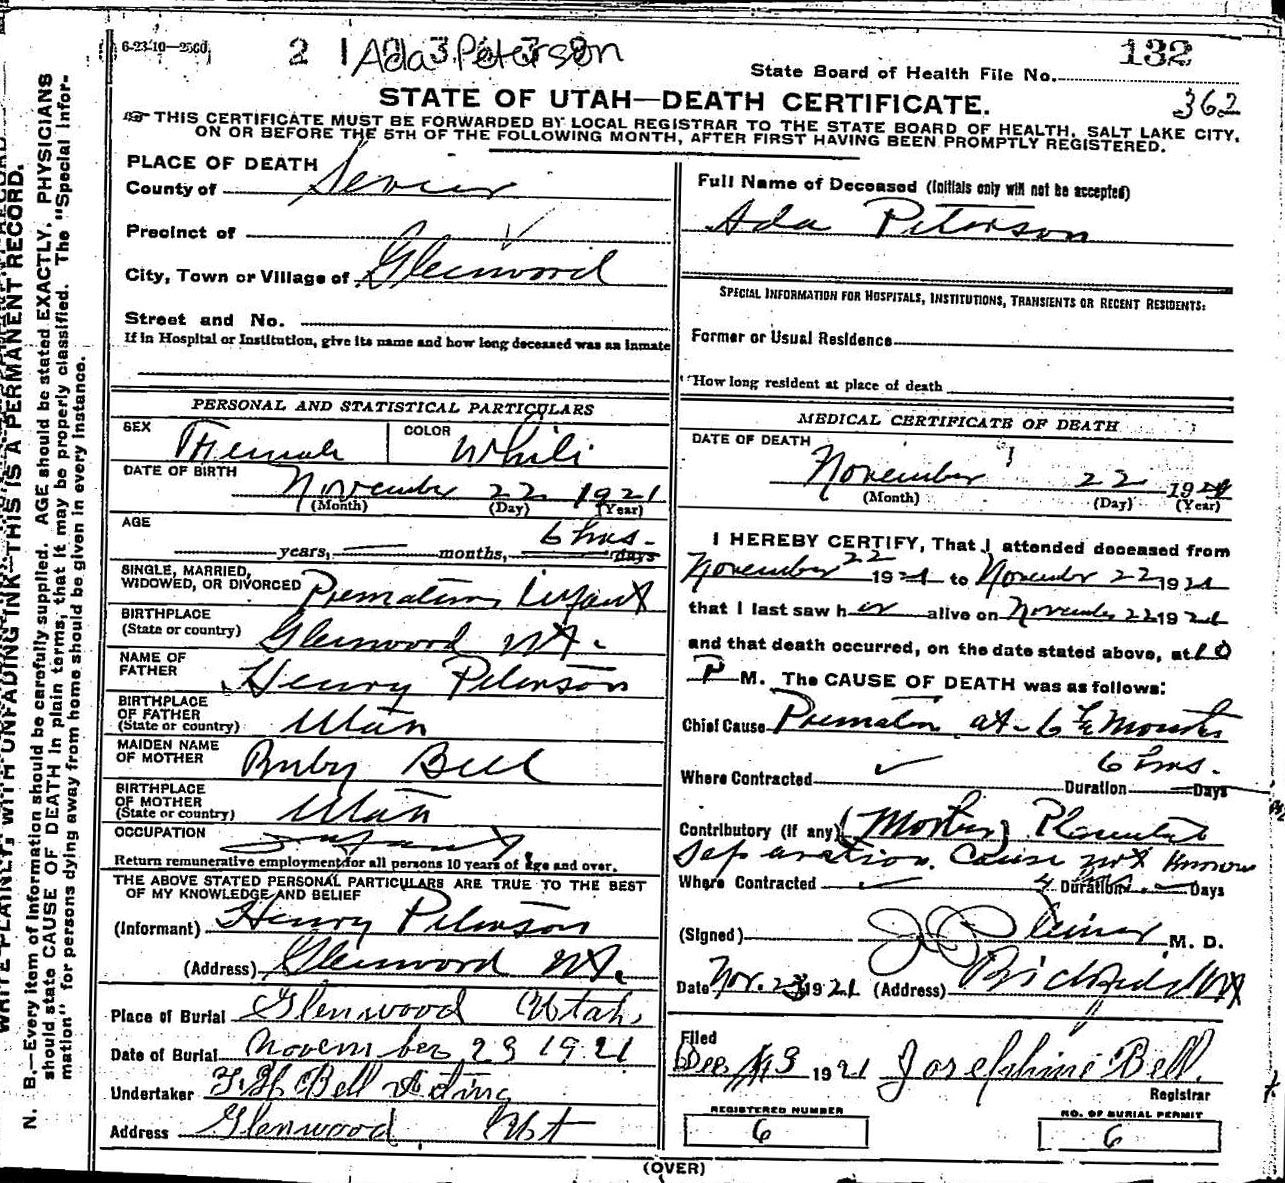 6-23-10—25Gd.
2 1 Ada Peterson
132
State Board of Health File No.
362
STATE OF UTAH—DEATH CERTIFICATE.
THIS CERTIFICATE MUST BE FORWARDED BY LOCAL REGISTRAR TO THE STATE BOARD OF HEALTH, SALT LAKE CITY,
ON OR BEFORE THE 5TH OF THE FOLLOWING MONTH, AFTER FIRST HAVING BEEN PROMPTLY REGISTERED.
PLACE OF DEATH
County of Sevier
Precinct of
City, Town or Village of Glenwood
Street and No.
If in Hospital or Institution, give its name and how long deceased was an inmate
PERSONAL AND STATISTICAL PARTICULARS
SEX Female COLOR White
DATE OF BIRTH November 22 1921
(Month) (Day) (Year)
AGE 6 hrs.
years, months, days
SINGLE, MARRIED,
WIDOWED, OR DIVORCED Premature Infant
BIRTHPLACE
(State or country) Glenwood Ut.
NAME OF
FATHER Henry Peterson
BIRTHPLACE
OF FATHER
(State or country) Utah
MAIDEN NAME
OF MOTHER Ruby Bell
BIRTHPLACE
OF MOTHER
(State or country) Utah
OCCUPATION Infant
Return remunerative employment for all persons 10 years of age and over.
THE ABOVE STATED PERSONAL PARTICULARS ARE TRUE TO THE BEST
OF MY KNOWLEDGE AND BELIEF
(Informant) Henry Peterson
(Address) Glenwood Ut.
Place of Burial Glenwood Utah,
Date of Burial November 23 1921
Undertaker Bell Acting
Address Glenwood Ut
Full Name of Deceased (Initials only will not be accepted)
Ada Peterson
SPECIAL INFORMATION FOR HOSPITALS, INSTITUTIONS, TRANSIENTS OR RECENT RESIDENTS:
Former or Usual Residence
How long resident at place of death
MEDICAL CERTIFICATE OF DEATH
DATE OF DEATH
November 22 1921
(Month) (Day) (Year)
I HEREBY CERTIFY, That I attended deceased from
November 22 1921 to November 22 1921
that I last saw her alive on November 22 1921
and that death occurred, on the date stated above, at 10
P M. The CAUSE OF DEATH was as follows:
Chief Cause Premature at 6 1/2 Months
6 hrs.
Where Contracted Duration Days
Contributory (if any) (Mother) Placental
Separation. Cause not known
Where Contracted Duration Days
(Signed) M. D.
Date Nov. 23 1921 (Address) Richfield Ut
Filed
Dec 3 1921 Josephine Bell.
Registrar
REGISTERED NUMBER
6
NO. OF BURIAL PERMIT
6
(OVER)
WRITE PLAINLY, WITH UNFADING INK—THIS IS A PERMANENT RECORD.
N. B.—Every item of information should be carefully supplied. AGE should be stated EXACTLY. PHYSICIANS
should state CAUSE OF DEATH in plain terms, that it may be properly classified. The "Special Infor-
mation" for persons dying away from home should be given in every instance.